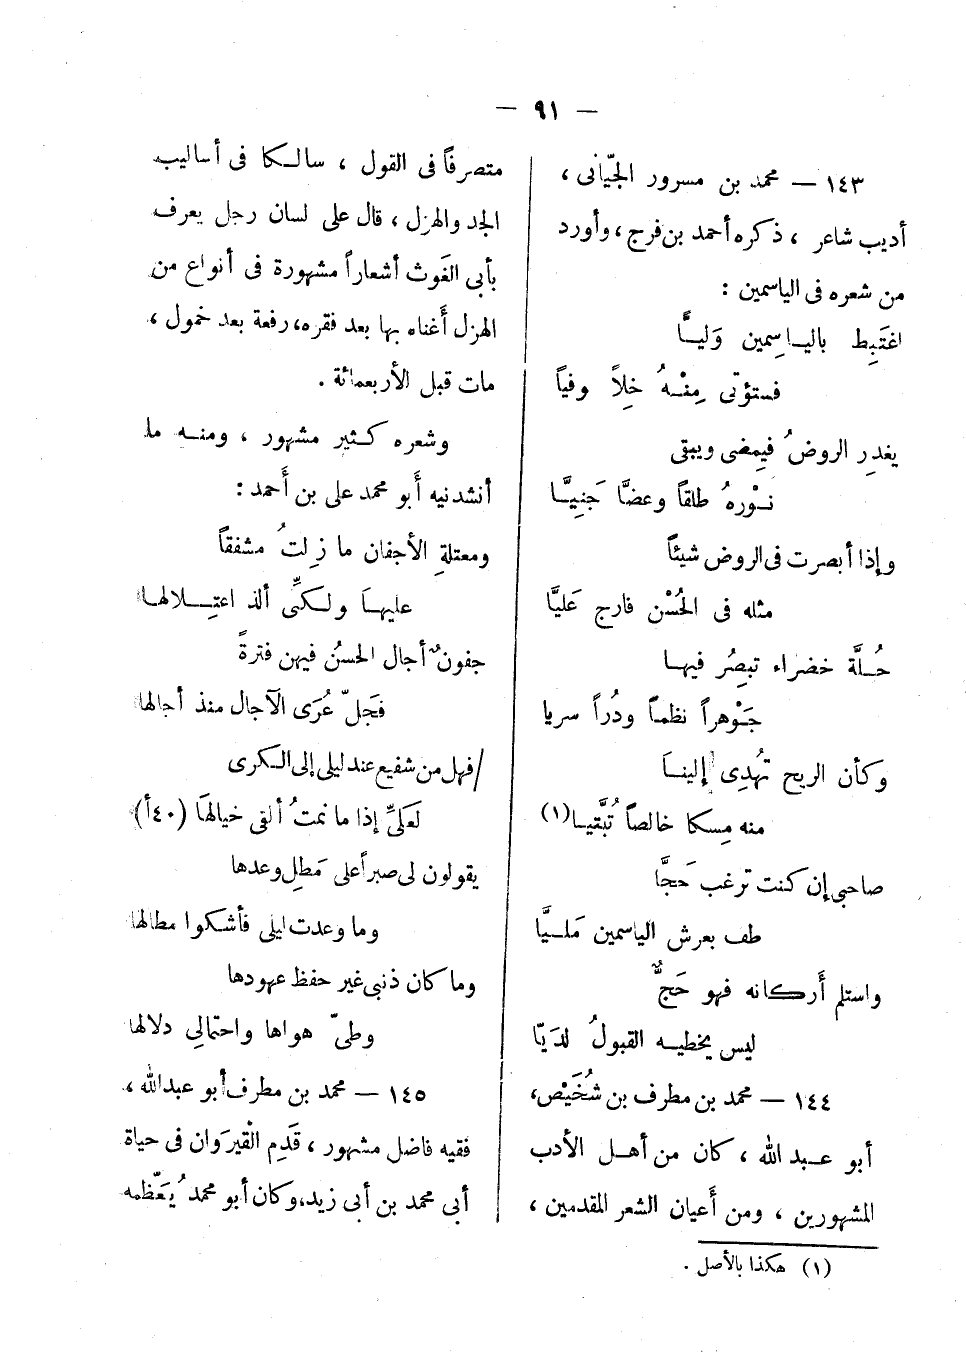 — ٩١ —
١٤٣ — محمد بن مسرور الجيّانى ،
أديب شاعر ، ذكره أحمد بن فرج ، وأورد
من شعره فى الياسمين :
اغتَبِط باليـاسِمين وَليـًّا
فستؤتى مِنْـهُ خِلاً وفياً
يغدِر الروضُ فيمضى ويبقى
نـوْرهُ طلقاً وعضًّا جَنِيًّـا
وإذا أبصرت فى الروض شيئاً
مثله فى الحُسْن فارج عَليًّا
حُـلَّة خضراء تبصِرُ فيهـا
جَـوْهراً نظماً ودُراً سريا
وكأن الريح تهُدِى إلينـاَ
منه مِسكا خالصاً تُبَّتيـا (١)
صاحبى إن كنت ترغب حَجًّا
طف بعرش الياسمين مَلـيًّا
واستلم أَركانه فهو حَجٌّ
ليس يخطيـه القبولُ لدَيّا
١٤٤ — محمد بن مطرف بن شُخَيْص ،
أبو عـبد الله ، كان من أهـل الأدب
المشهورين ، ومن أَعيان الشعر المقدمين ،
(١) هكذا بالأصل .
متصرفاً فى القول ، سالـكا فى أساليب
الجد والهزل ، قال على لسان رجل يعرف
بأبى الغَوث أشعاراً مشهورة فى أنواع من
الهزل أَغناه بها بعد فقره، رفعة بعد خمول ،
مات قبل الأربعمائة .
وشعره كـثير مشهور ، ومنـه ما
أنشدنيه أَبو محمد على بن أَحمد :
ومعتلةِ الأجفان ما زلتُ مشفقاً
عليهـاَ ولـكنِّى ألذ اعتِـلالهـا
جفونٌ أجال الحسنُ فيهن فترةً
فَجَلّ عُرَى الآجال منذ أجالها
/ فهل من شفيع عند ليلى إلى الـكرى
لَعَلىِّ إذا ما نمتُ ألفى خيالهَا (٤٠أ)
يقولون لى صبراً على مَطل وعدها
وما وعدت ليلى فأشكوا مطالها
وما كان ذنبى غير حفظ عهودها
وطىّ هواها واحتمالى دلالها
١٤٥ — محمد بن مطرف أبو عبد الله ،
فقيه فاضل مشهور ، قَدِم الْقيرَوان فى حياة
أبى محمد بن أبى زيد، وكان أبو محمد يُعَظّمه